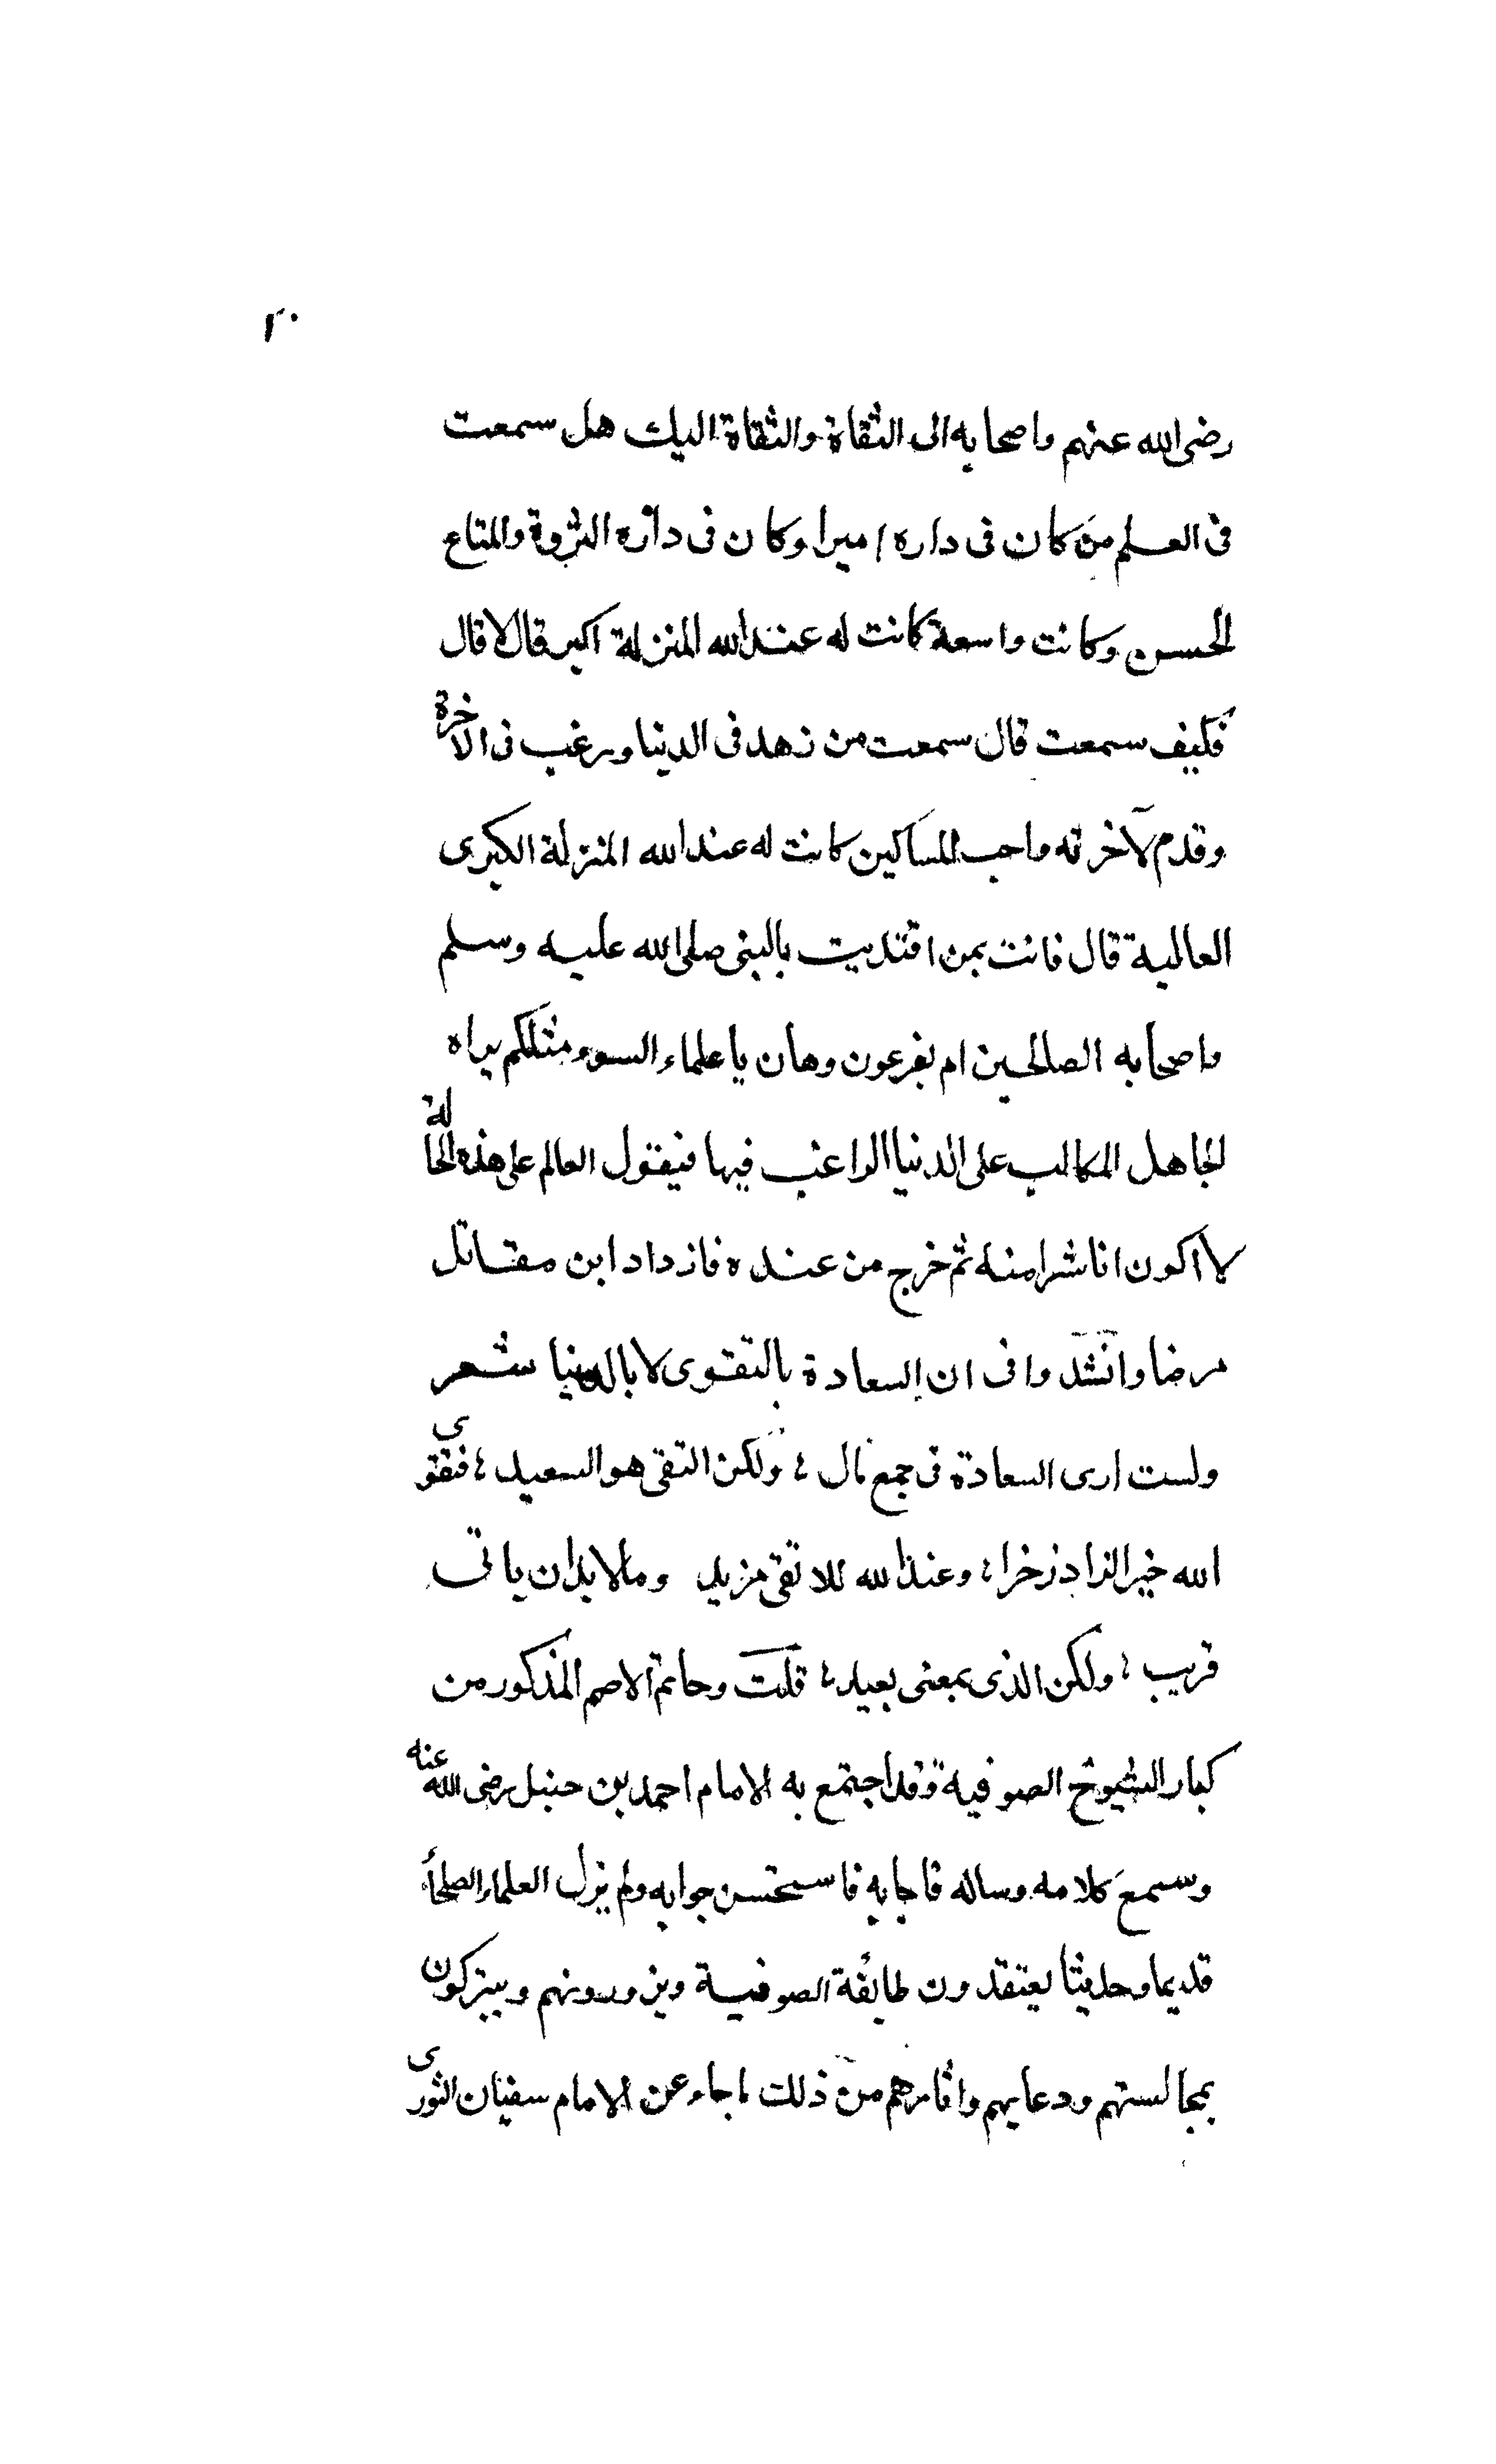 ٢٠
رضى الله عنهم واصحابه الى الثقاة والثقاة اليك هل سمعت
فى العلم من كان فى داره اميرا وكان فى داره الثروة والمتاع
الحسن وكانت واسعة كانت له عند الله المنزلة اكبر قال لا قال
فكيف سمعت قال سمعت من زهد فى الدنيا ورغب فى الاخرة
وقدم لآخرته واحب المساكين كانت له عند الله المنزلة الكبرى
العالية قال فانت بمن اقتديت بالنبى صلى الله عليه وسلم
واصحابه الصالحين ام بفرعون وهان يا علماء السوء مثلكم يراه
الجاهل المكالب على الدنيا الراغب فيها فيقول العالم على هذه الحالة
لا اكون انا شرا منه ثم خرج من عنده فازداد ابن مقاتل
مرضا وانشد وافى ان السعادة بالتقوى لا بالدنيا شعر
ولست ارى السعادة فى جمع مال ولكن التقى هو السعيد فتقوى
الله خير الزاد زخرا وعند الله للاتقى مزيد وما لا بد ان ياتى
قريب ولكن الذى بمعنى بعيد قلت وحاتم الاصم المذكور من
كبار الشيوخ الصوفية وقد اجتمع به الامام احمد بن حنبل رضى الله عنه
وسمع كلامه وساله فاجابه فاستحسن جوابه ولم يزل العلماء الصلحاء
قديما وحديثا يعتقدون طايفة الصوفية ويزورونهم ويتبركون
بمجالستهم ودعايهم واثارهم من ذلك ما جاء عن الامام سفيان الثورى